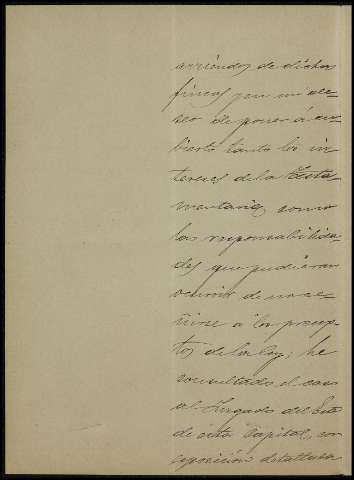 arriendos de dichas
fincas y en mi de-
seo de poner á cu-
bierto tanto los in
tereses de la Testa
mentaria, como
las responsabilida-
des que pudieran
ocurrir de no ce-
ñirse á los precep-
tos de la ley; he
consultado el caso
al Juzgado del Este
de esta Capital, con
esposicion detallada